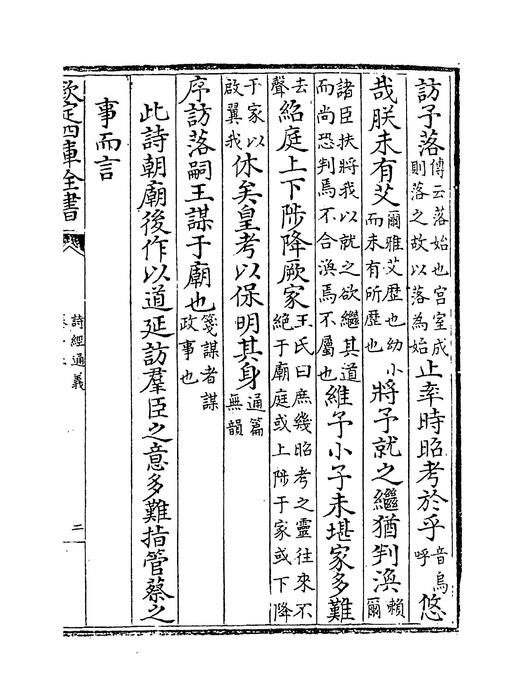 訪予落傳云落始也宮室成則落之故以落為始止率時昭考於乎音烏呼悠
哉朕未有艾爾雅艾歴也幼小而未有所歴也將予就之繼猶判渙賴爾
諸臣扶將我以就之欲繼其道而尚恐判焉不合渙焉不屬也維予小子未堪家多難
去聲紹庭上下陟降厥家王氏曰庶幾昭考之靈往來不絕于廟庭或上陟于家或下降
于家以啟翼我休矣皇考以保明其身通篇無韻
序訪落嗣王謀于廟也箋謀者謀政事也
此詩朝廟後作以道延訪羣臣之意多難指管蔡之
事而言
欽定四庫全書
詩經通義
二